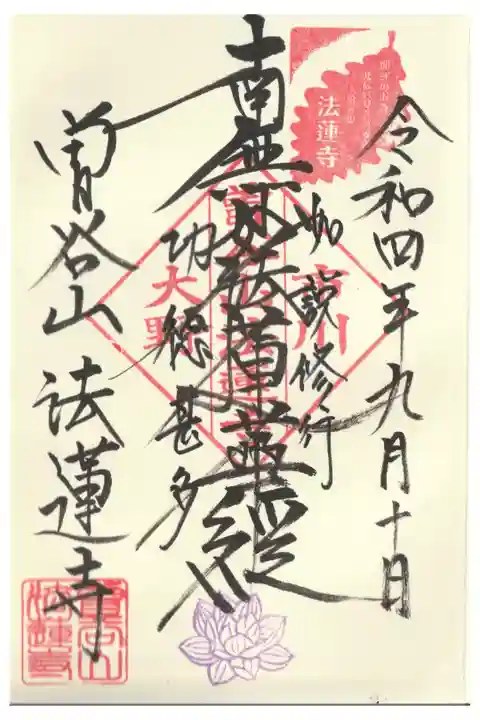 令和四年九月十日
法蓮寺
如説修行
市川
南無妙法蓮華経
曽谷山法蓮寺
功徳甚多
大野
曽谷山 法蓮寺